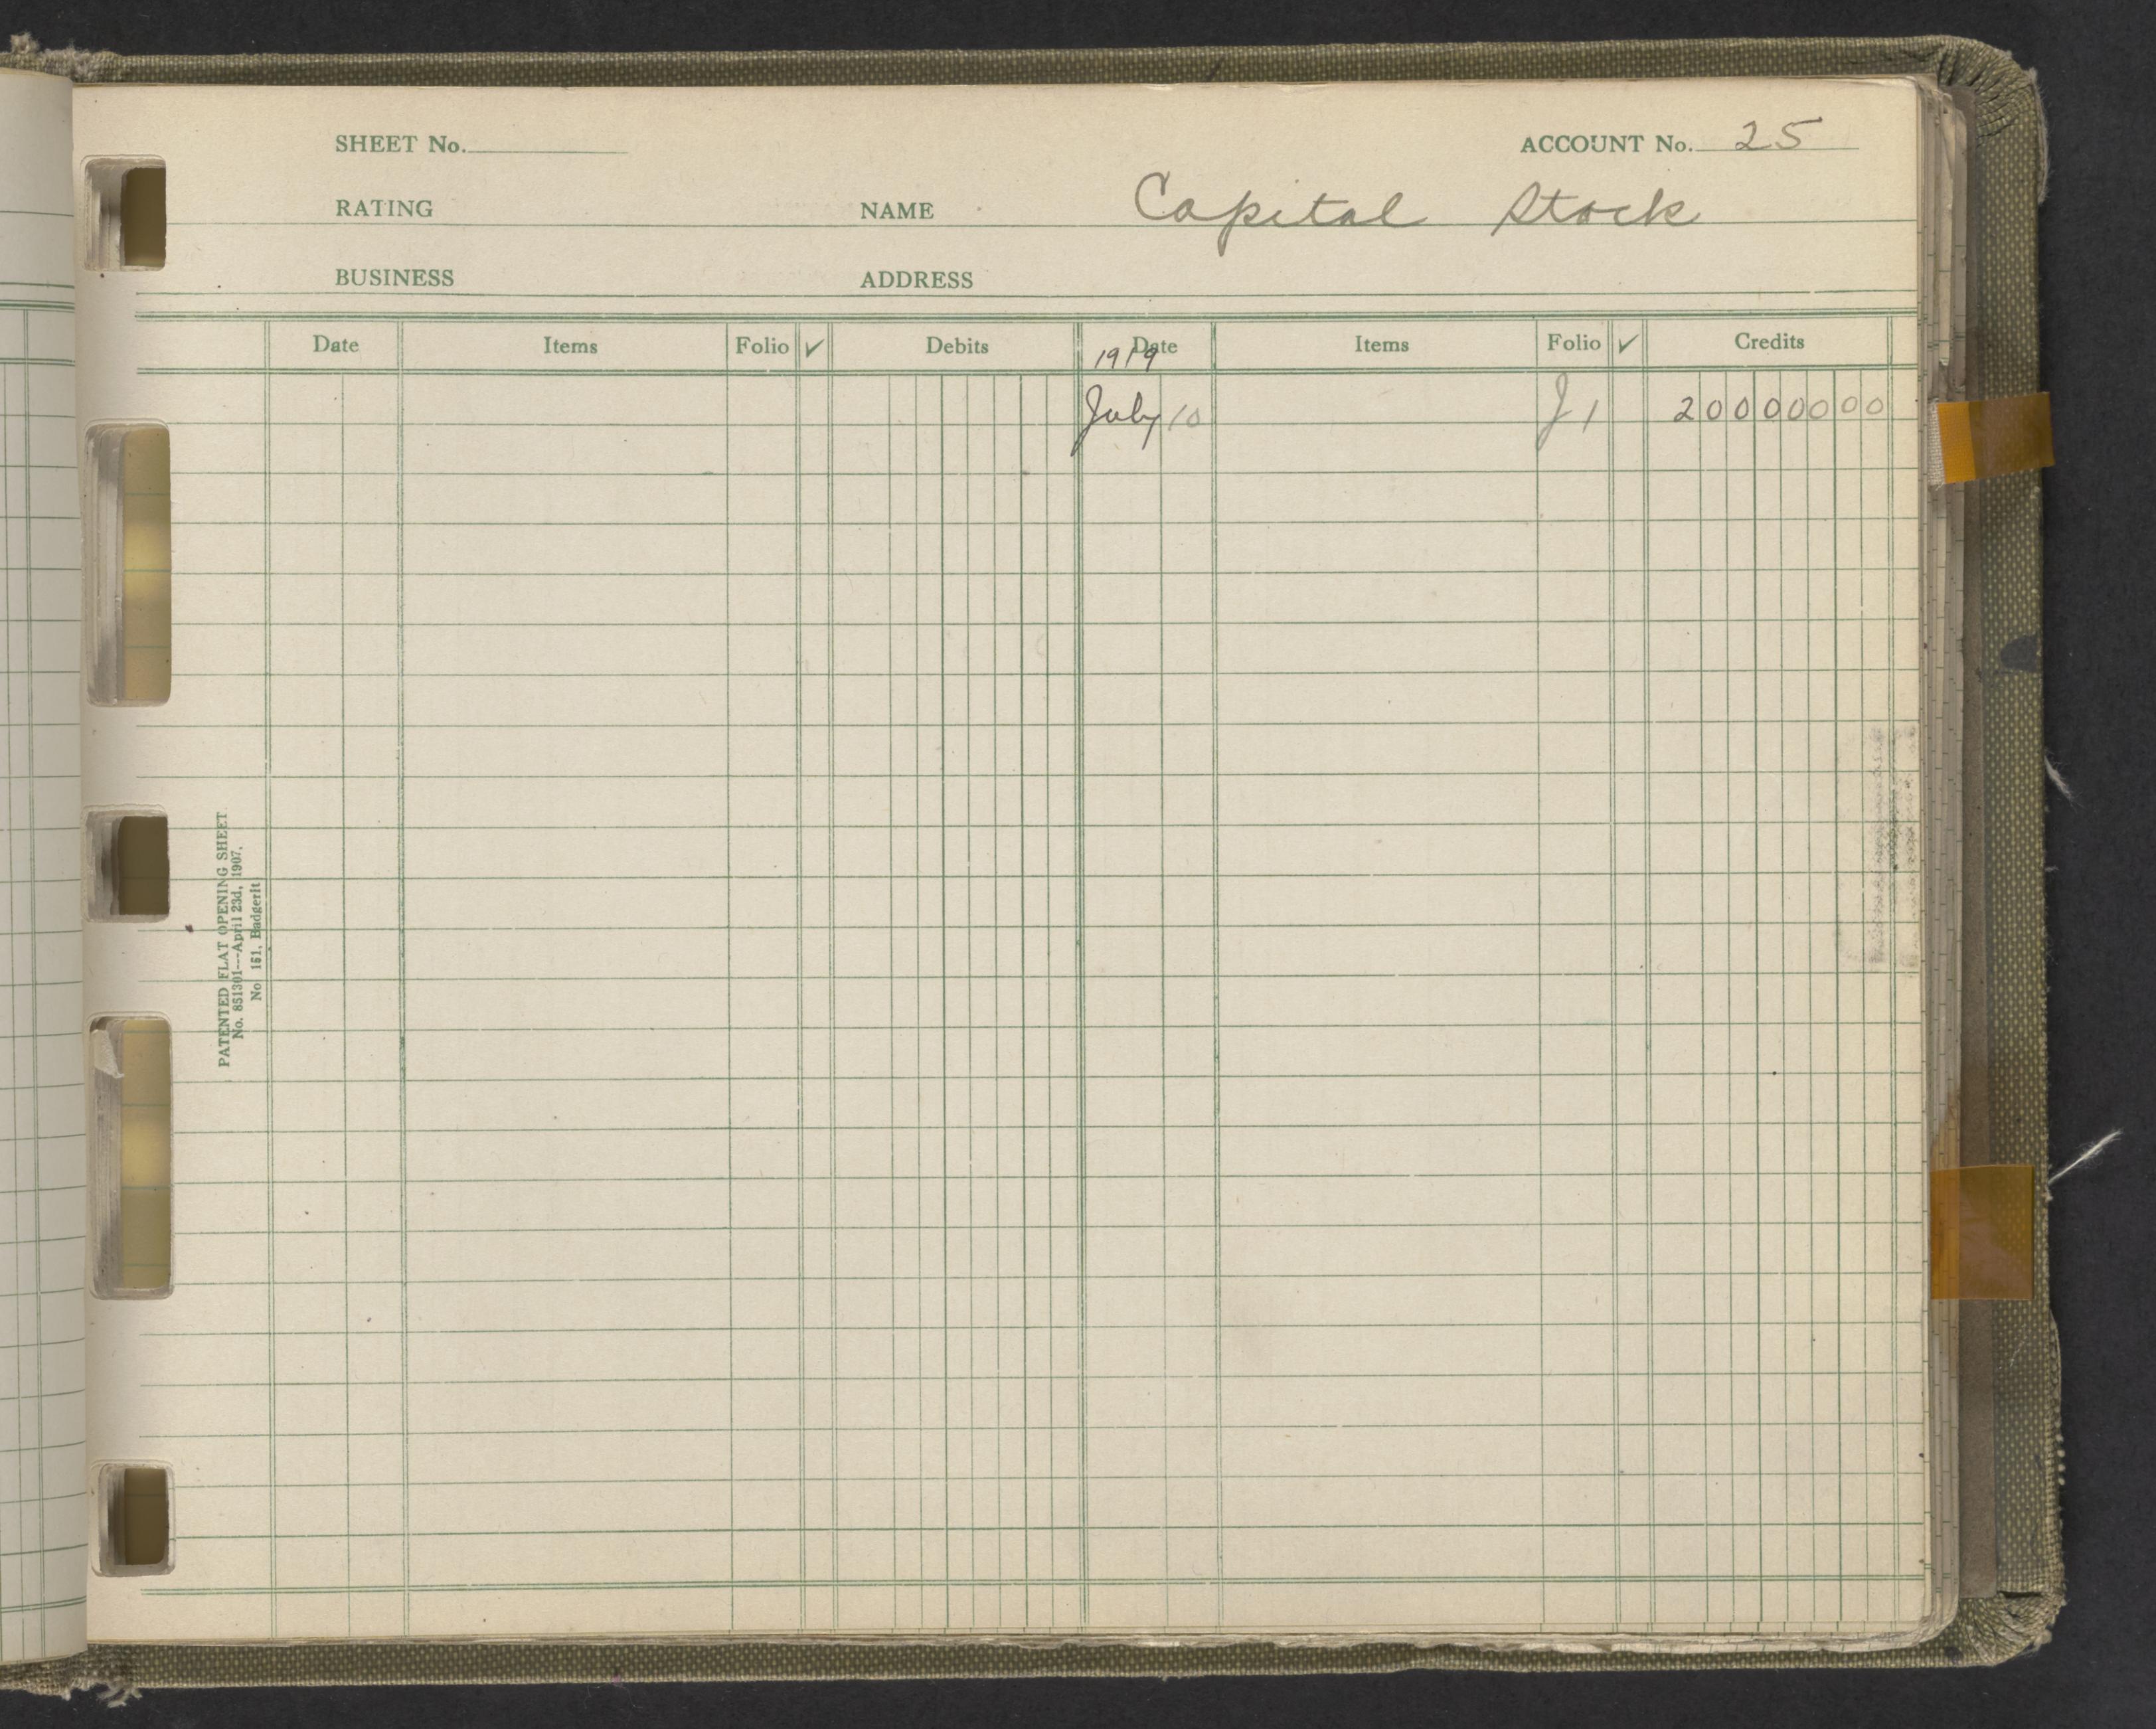 SHEET No. ACCOUNT No. 25
RATING NAME Capital Stock
BUSINESS ADDRESS
Date Items Folio ✓ Debits Date Items Folio ✓ Credits
1919
July 10 J 1 20000000
PATENTED FLAT OPENING SHEET
No. 851301—April 23d, 1907.
No. 161. Badgerit